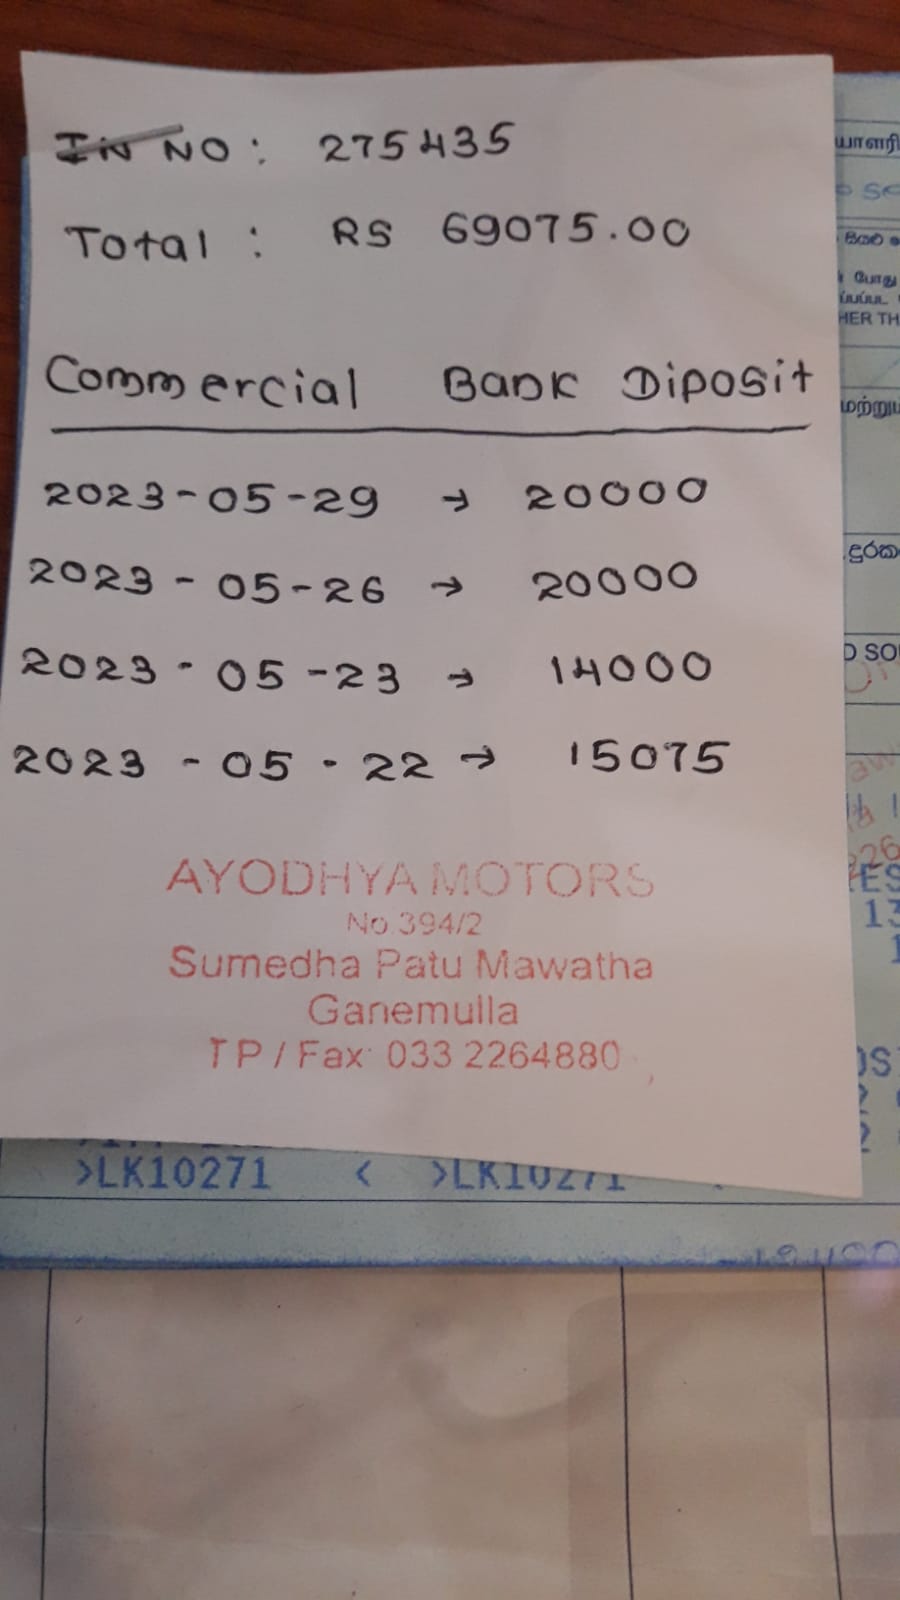 IN NO : 275435
Total : RS 69075.00
Commercial Bank Diposit
2023-05-29 → 20000
2023 - 05-26 → 20000
2023 - 05 -23 → 14000
2023 - 05 - 22 → 15075
AYODHYA MOTORS
No.394/2
Sumedha Patu Mawatha
Ganemulla
T P / Fax: 033 2264880
>LK10271 < >LK10271
HER TH
D SO
ES
13
1